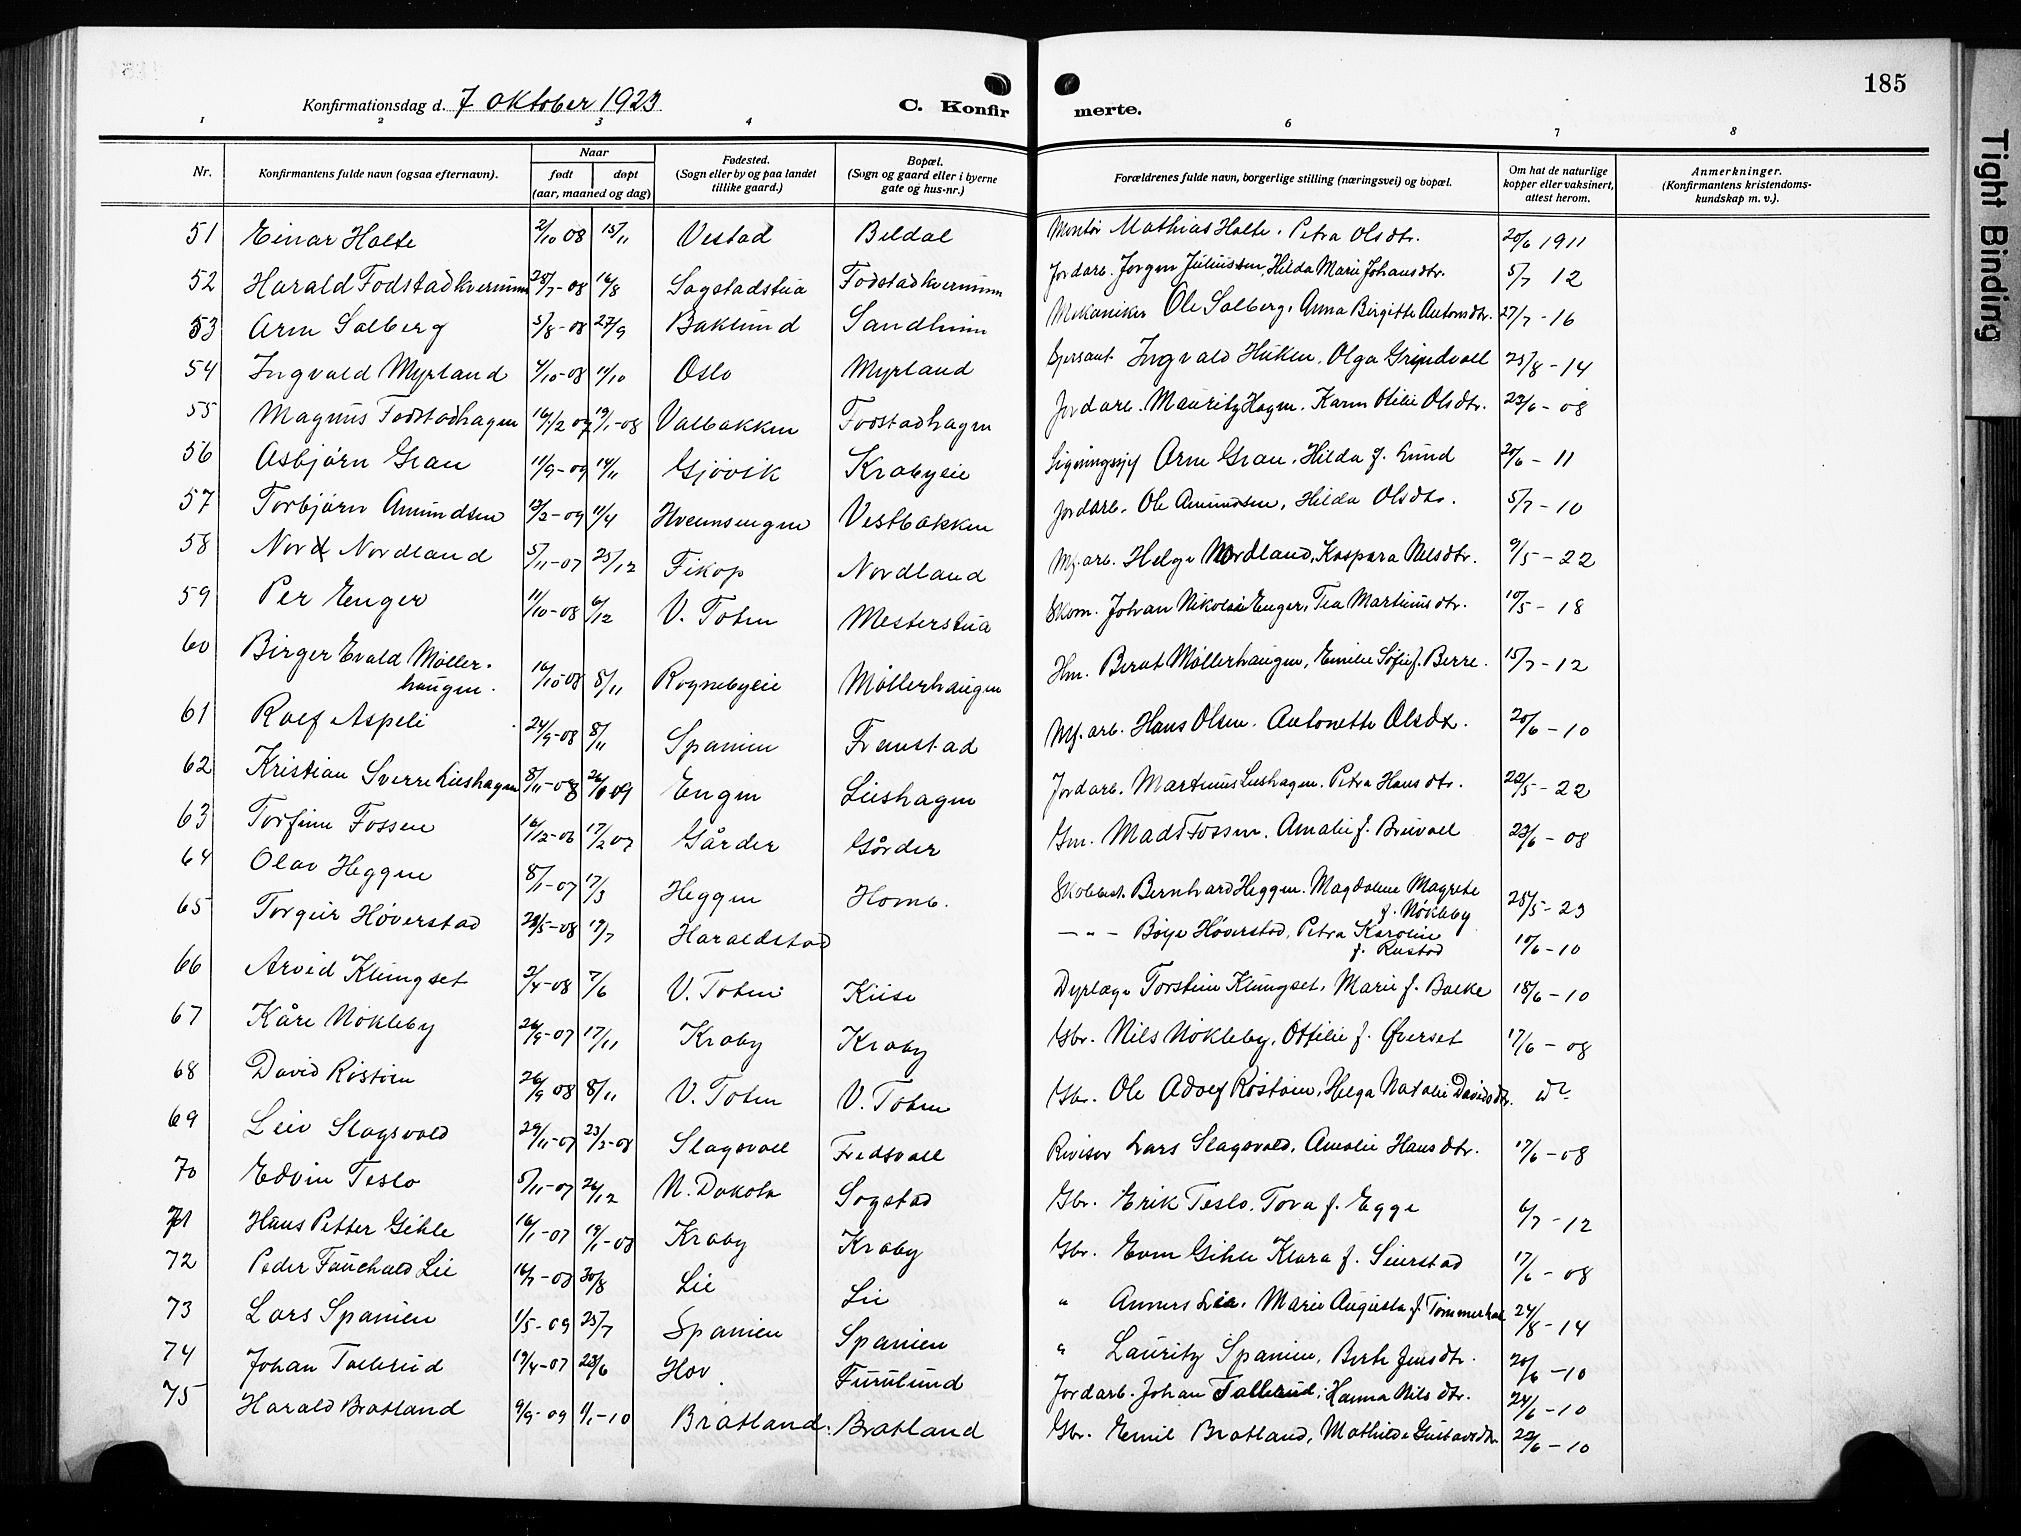 185
Konfirmationsdag d. 7 oktober 1923
C. Konfirmerte.
1 2 3 4 5 6 7 8
Nr. Konfirmantens fulde navn (ogsaa efternavn). Naar født døpt (aar, maaned og dag) Fødested. (Sogn eller by og paa landet tillike gaard.) Bopæl. (Sogn og gaard eller i byerne gate og hus-nr.) Forældrenes fulde navn, borgerlige stilling (næringsvei) og bopæl. Om hat de naturlige kopper eller vaksinert, attest herom. Anmerkninger. (Konfirmantens kristendoms-kundskap m. v.).
51 Einar Holte 2/10 08 15/11 Vestad Beldal Montør Mathias Holte. Petra Olsdtr. 20/6 1911
52 Harald Fodstadkvernum 28/7-08 16/8 Sagstadstua Fodstadkvernum Jordarb. Jørgen Juliussen, Hilda Marie Johansdtr. 5/7 12
53 Arne Solberg 5/8-08 27/9 Baklund Sandheim Mekaniker Ole Solberg, Anna Birgitte Antonsdtr. 27/7-16
54 Ingvald Myrland 4/10-08 11/10 Oslo Myrland Ingvald Huken. Olga Grindvoll 25/8-14
55 Magnus Fodstadhagen 16/12 07 19/1-08 Valbakken Fodstadhagen Jordarb. Mauritz Hagen. Karen Otilie Olsdtr. 23/6-08
56 Asbjørn Gran 11/9-09 14/11 Gjøvik Krabyeie Arne Gran. Hilda f. Lund 20/6-11
57 Torbjørn Amundsen 13/2-09 11/4 Hvemsengen Vestbakken Jordarb. Ole Amundsen, Hilda Olsdtr. 5/7-10
58 Nord Nordland 5/11-07 25/12 Fikop Nordland Mf. arb. Helge Nordland, Kaspara Nilsdtr. 9/5-22
59 Per Enger 11/10-08 6/12 V. Toten Mesterstua Skom. Johan Nikolai Enger, Tea Martinusdtr. 10/5-18
60 Birger Evald Møller-
haugen. 16/10-08 8/11 Rognebyeie Møllerhaugen Hm. Bernt Møllerhaugen, Emilie Sofie f. Berre. 15/7-12
61 Rolf Aspeli 24/9-08 8/11 Spanien Fremstad Mf. arb. Hans Olsen. Antonette Olsdtr. 20/6-10
62 Kristian Sverre Lieshagen 8/11-08 26/ 09 Engen Lieshagen Jordarb. Martinus Lieshagen. Petra Hansdtr. 22/5-22
63 Torfinn Fossen 16/12-06 17/2 07 Gårder Gårder Gm. Mads Fossen. Amalie f. Breivoll 23/6-08
64 Olav Heggen 8/1-07 17/3 Heggen Homb. Skolebest. Bernhard Heggen. Magdalene Magrete
f. Nøkleby 25/5-23
65 Torgeir Høverstad 28/5-08 19/7 Haraldstad - " - Boye Høverstad, Petra Karoline
f. Rustad 10/6-10
66 Arvid Klungset 2/4-08 7/6 V. Toten Kiise Dyrlæge Torstein Klungset, Marie f. Balke 18/6-10
67 Kåre Nøkleby 26/9-07 17/11 Kraby Kraby Gbr. Nils Nøkleby, Ottilie f. Øverset 17/6-08
68 David Røstøen 26/9 08 8/11 V. Toten V. Toten Gbr. Ole Adolf Røstøen, Helga Natalie Davidsdtr. do
69 Leiv Slagsvold 29/11-07 23/2-08 Slagsvoll Fredsvoll Revisor Lars Slagsvold, Amalie Hansdtr. 17/6-08
70 Edvin Teslo 5/11-07 26/12 N. Dakota Sogstad Gbr. Erik Teslo. Tova f. Egge 6/7-12
71 Hans Petter Gihle 16/1-07 19/1-08 Kraby Kraby Gbr. Even Gihle Klara f. Seierstad 17/6-08
72 Peder Fauchald Lie 16/7-08 30/8 Lie Lie " Anners Lie. Marie Augusta f. Tømmerhol 24/8-14
73 Lars Spanien 1/5-09 25/7 Spanien Spanien " Lauritz Spanien, Berte Jensdtr. 20/6-10
74 Johan Tollerud 19/4-07 23/6 Hov. Furulund Jordarb. Johan Tollerud; Hanna Nilsdtr. 24/6-10
75 Harald Bratland 9/9-09 1/1-10 Bratland. Bratland Gbr. Emil Bratland, Mathilde Gustavsdtr. 22/6-10
Tight Binding